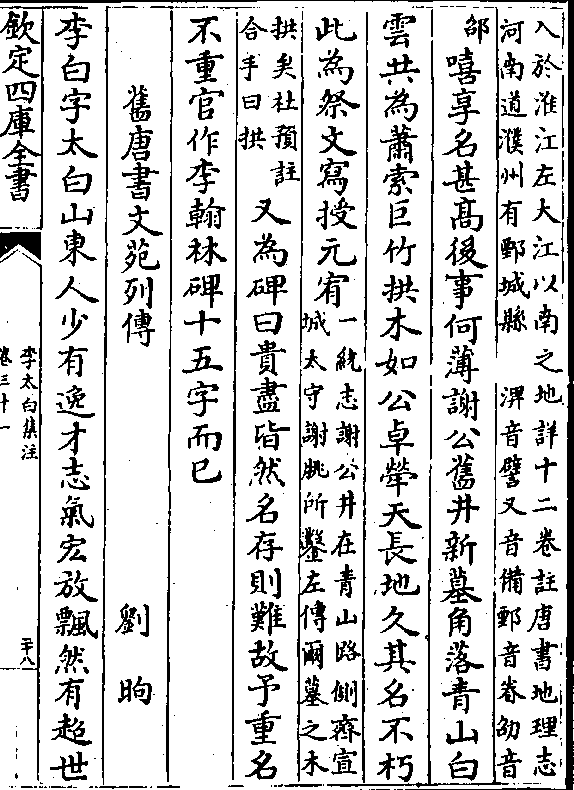 入於淮江左大江以南之地詳十二卷註唐書地理志
河南道濮州有鄄城縣　淠音譬又音備鄄音眷劭音
邵
嘻享名甚髙後事何薄謝公舊井新墓角落青山白
雲共為蕭索巨竹拱木如公卓犖天長地久其名不朽
此為祭文寫授元宥
一統志謝公井在青山路側齊宣
城太守謝朓所鑿左傳爾墓之木
拱矣杜預註
合手曰拱
又為碑曰貴盡皆然名存則難故予重名
不重官作李翰林碑十五字而已
舊唐書文苑列傳　劉昫
李白字太白山東人少有逸才志氣宏放飄然有超世
欽定四庫全書
李太白集注
卷三十一
二十八